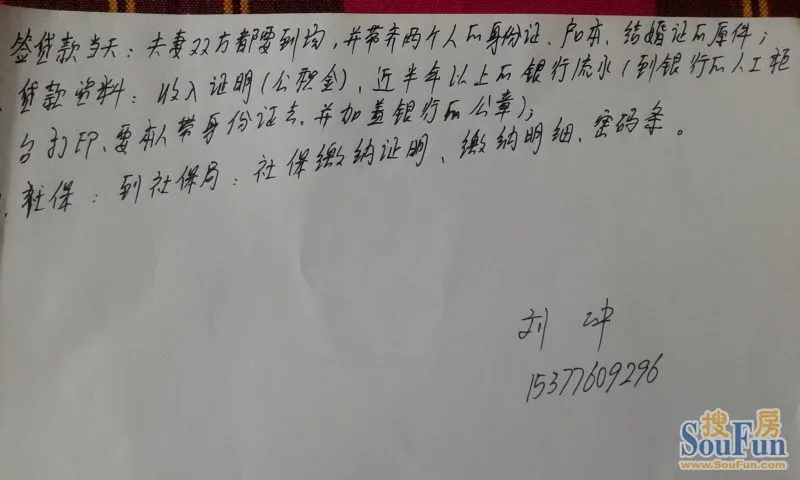 签贷款当天：夫妻双方都要到场，并带齐两个人的身份证、户本、结婚证的原件；
贷款资料：收入证明(公积金)、近半年以上的银行流水(到银行的人工柜
台打印、要本人带身份证去、并加盖银行的公章)；
社保：到社保局：社保缴纳证明、缴纳明细、密码条。
刘 冲
15377609296
搜房
SouFun
www.SouFun.com